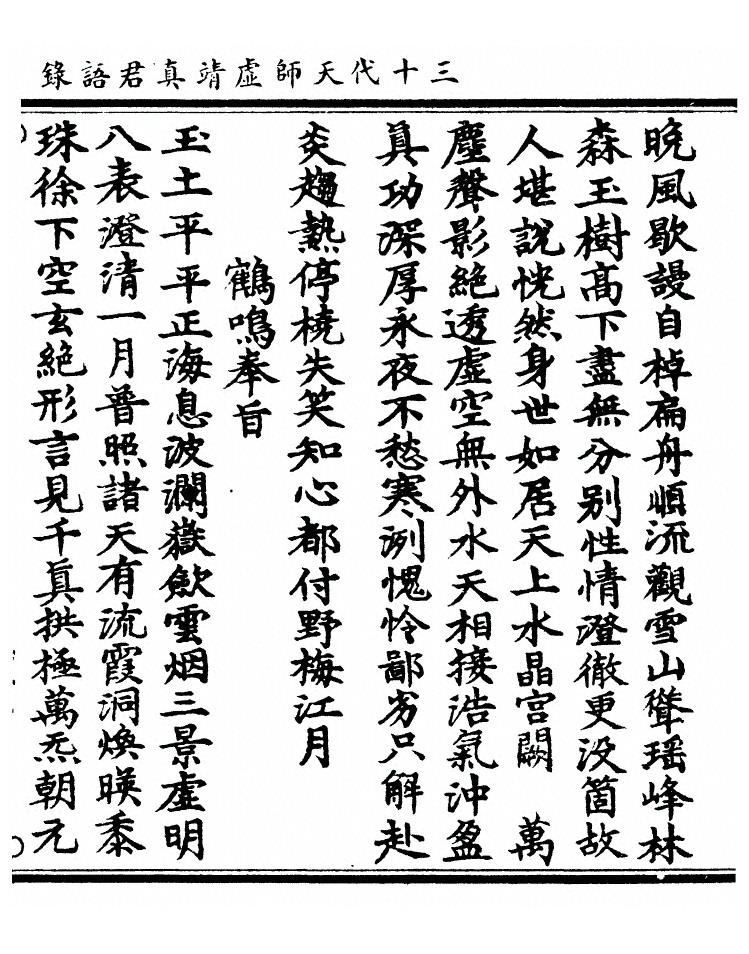 三十代天師虛靖真君語錄
晚風歇謾自棹扁舟順流觀雪山聳瑶峰林
森玉樹高下盡無分别性情澄徹更没箇故
人堪說恍然身世如居天上水晶宫闕　萬
塵聲影絶透虛空無外水天相接浩氣沖盈
真功深厚永夜不愁寒冽愧怜鄙劣只解赴
炎趨熱停橈失笑知心都付野梅江月
鶴鳴奉旨
玉土平平正海息波瀾嶽歛雲烟三景虛明
八表澄清一月普照諸天有流霞洞煥暎黍
珠徐下空玄絶形言見千真拱極萬炁朝元